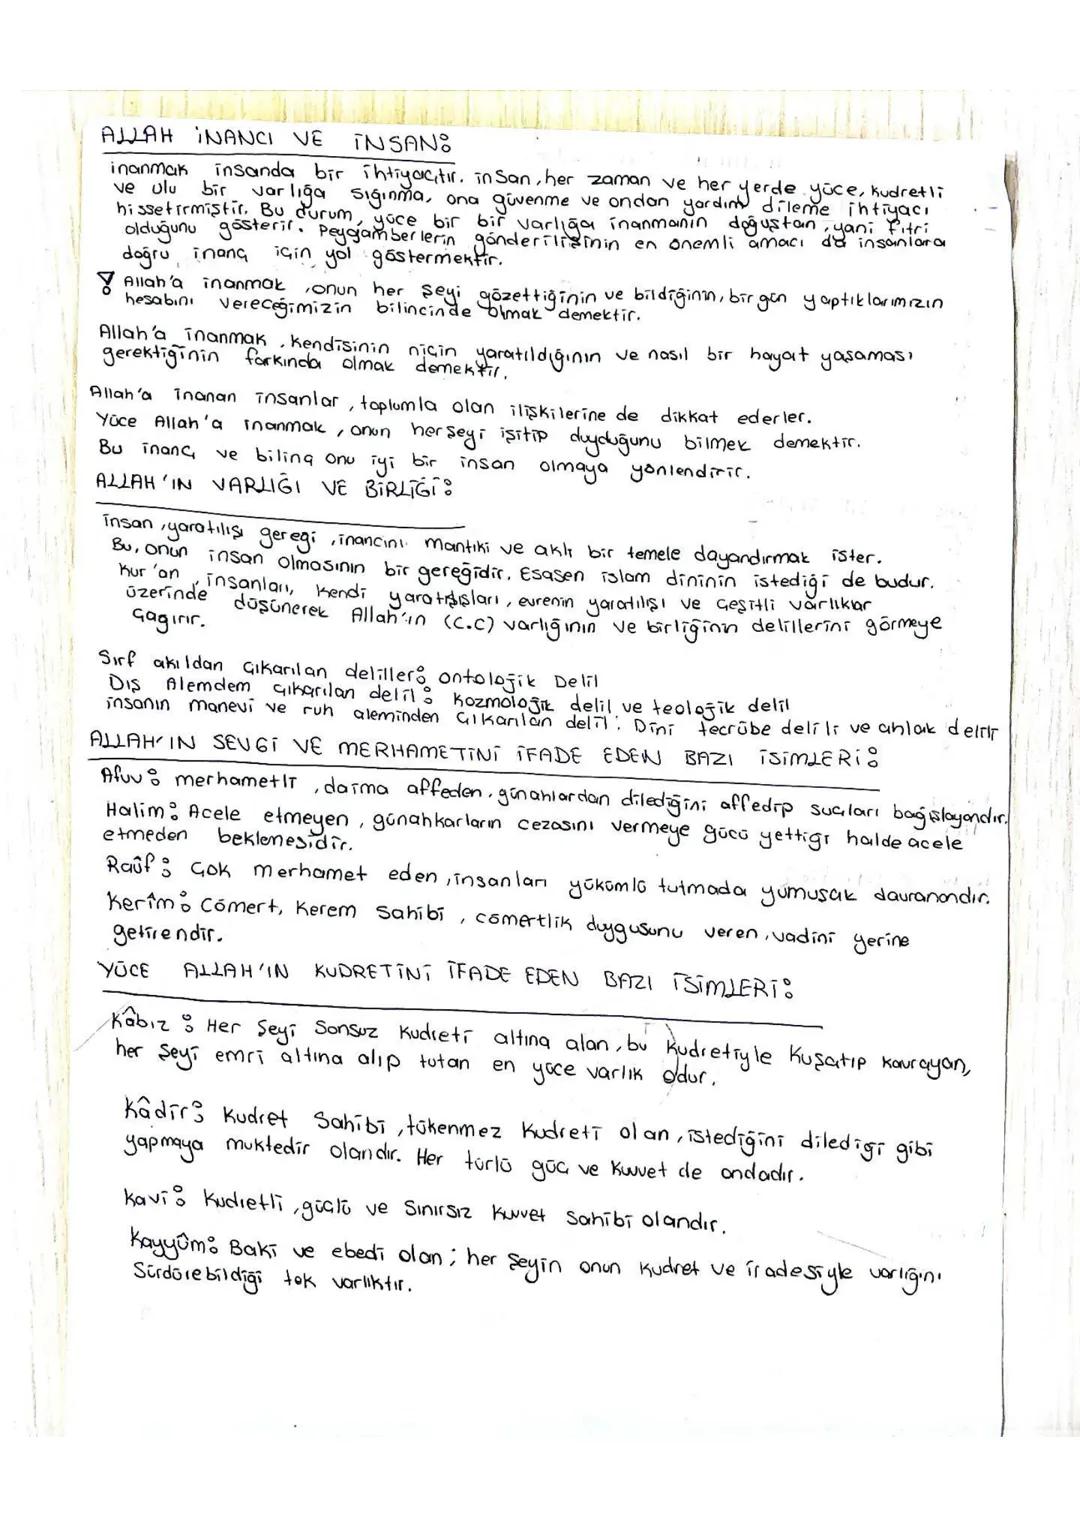 ALLAH İNANCI VE İNSAN:
inanmak insanda bir ihtiyaçtır. insan, her zaman ve her yerde yüce, kudretli
ve ulu bir varlığa sığınma, ona güvenme ve ondan yardım dileme ihtiyacı
hissetirmiştir. Bu durum, yüce bir bir varlığa inanmanın doğuştan, yani fıtri
olduğunu gösterir. Peygamberlerin gönderilişinin en önemli amacı da insanlara
doğru inanç için yol göstermektir.
Allah'a inanmak, onun her şeyi gözettiğinin ve bildiğinin, bir gün yaptıklarımızın
hesabını vereceğimizin bilincinde olmak demektir.
Allah'a inanmak, kendisinin niçin yaratıldığının ve nasıl bir hayat yaşaması
gerektiğinin farkında olmak demektir.
Allah'a inanan insanlar, toplumla olan ilişkilerine de dikkat ederler.
Yüce Allah'a inanmak, onun herşeyi işitip duyduğunu bilmek demektir.
Bu inanç ve bilinç onu iyi bir insan olmaya yönlendirir.
ALLAH'IN VARLIĞI VE BİRLİĞİ:
insan, yaratılışı gereği, inancını mantıki ve aklı bir temele dayandırmak ister.
Bu, onun insan olmasının bir gereğidir. Esasen islam dininin istediği de budur.
Kur'an, insanları, kendi yaratışları, evrenin yaratılışı ve çeşitli varlıklar
üzerinde düşünerek Allah'ın (c.c) varlığının ve birliğinin delillerini görmeye
çağırır.
Sırf akıldan çıkarılan deliller: ontolojik Delil
Dış Alemdem çıkarılan delil: kozmolojik delil ve teolojik delil
insanın manevi ve ruh aleminden çıkarılan delil: Dini tecrübe delili ve ahlak delili
ALLAH'IN SEVGİ VE MERHAMETİNİ İFADE EDEN BAZI İSİMLERİ:
Afuv: merhametli, daima affeden, günahlardan dilediğini affedip suçları bağışlayandır.
Halim: Acele etmeyen, günahkarların cezasını vermeye gücü yettiği halde acele
etmeden beklenesidir.
Raûf: Çok merhamet eden, insanları yükümlü tutmada yumuşak davranandır.
Kerîm: Cömert, kerem sahibi, cömertlik duygusunu veren, vadini yerine
getirendir.
YÜCE ALLAH'IN KUDRETİNİ İFADE EDEN BAZI İSİMLERİ:
Kâbız: Her şeyi sonsuz kudreti altına alan, bu kudretiyle kuşatıp kavrayan,
her şeyi emri altına alıp tutan en yüce varlık odur.
Kâdir: Kudret sahibi, tükenmez kudreti olan, istediğini dilediği gibi
yapmaya muktedir olandır. Her türlü güç ve kuvvet de ondadır.
Kavi: kudretli, güçlü ve sınırsız kuvvet sahibi olandır.
Kayyûm: Baki ve ebedi olan; her şeyin onun kudret ve iradesiyle varlığını
sürdürebildiği tek varlıktır.